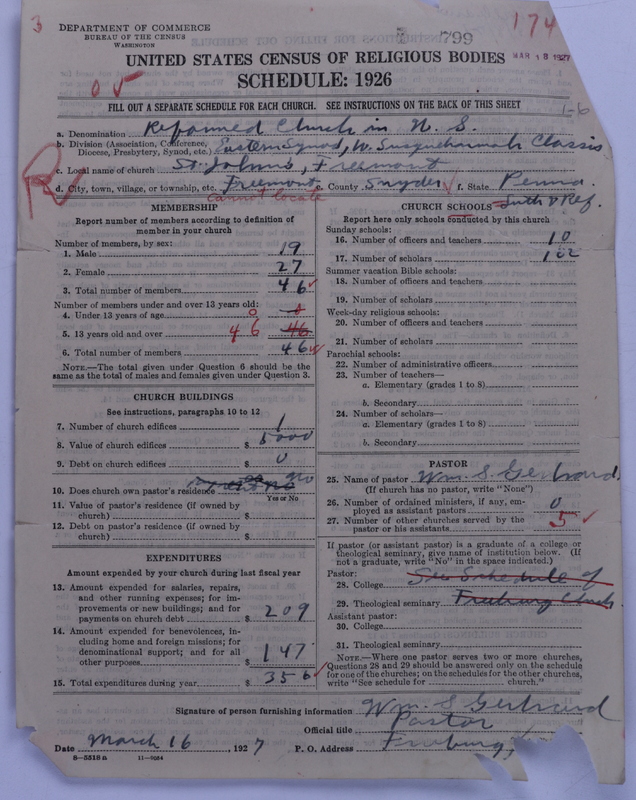 3
174
DEPARTMENT OF COMMERCE
BUREAU OF THE CENSUS
WASHINGTON
799
MAR 18 1927
UNITED STATES CENSUS OF RELIGIOUS BODIES
SCHEDULE: 1926
FILL OUT A SEPARATE SCHEDULE FOR EACH CHURCH. SEE INSTRUCTIONS ON THE BACK OF THIS SHEET
1-6
a. Denomination Reformed Church in U. S.
b. Division (Association, Conference, Diocese, Presbytery, Synod, etc.) Eastern Synod, W. Susquehannah Classis
c. Local name of church St. Johns, Freemont
d. City, town, village, or township, etc. Freemont e. County Snyder f. State Penna.
cannot locate
Luth & Ref.
MEMBERSHIP
Report number of members according to definition of member in your church
Number of members, by sex:
1. Male 19
2. Female 27
3. Total number of members 46
Number of members under and over 13 years old:
4. Under 13 years of age 0
5. 13 years old and over 46 46
6. Total number of members 46
NOTE.—The total given under Question 6 should be the same as the total of males and females given under Question 3.
CHURCH BUILDINGS
See instructions, paragraphs 10 to 12
7. Number of church edifices 1
8. Value of church edifices $ 5000
9. Debt on church edifices $ 0
10. Does church own pastor's residence no
Yes or No
11. Value of pastor's residence (if owned by church) $
12. Debt on pastor's residence (if owned by church) $
EXPENDITURES
Amount expended by your church during last fiscal year
13. Amount expended for salaries, repairs, and other running expenses; for improvements or new buildings; and for payments on church debt $ 209
14. Amount expended for benevolences, including home and foreign missions; for denominational support; and for all other purposes $ 147
15. Total expenditures during year $ 356
CHURCH SCHOOLS
Report here only schools conducted by this church
Sunday schools:
16. Number of officers and teachers 10
17. Number of scholars 102
Summer vacation Bible schools:
18. Number of officers and teachers
19. Number of scholars
Week-day religious schools:
20. Number of officers and teachers
21. Number of scholars
Parochial schools:
22. Number of administrative officers
23. Number of teachers—
a. Elementary (grades 1 to 8)
b. Secondary
24. Number of scholars—
a. Elementary (grades 1 to 8)
b. Secondary
PASTOR
25. Name of pastor Wm. S. Gerhard
(If church has no pastor, write "None")
26. Number of ordained ministers, if any, employed as assistant pastors 0
27. Number of other churches served by the pastor or his assistants 5
If pastor (or assistant pastor) is a graduate of a college or theological seminary, give name of institution below. (If not a graduate, write "No" in the space indicated.)
Pastor:
28. College See Schedule of
29. Theological seminary Freeburg Church
Assistant pastor:
30. College
31. Theological seminary
NOTE.—Where one pastor serves two or more churches, Questions 28 and 29 should be answered only on the schedule for one of the churches; on the schedules for the other churches, write "See schedule for church."
Signature of person furnishing information Wm. S Gerhard
Official title Pastor
Date March 16, 1927 P. O. Address Freeburg,
8—5518 a 11—9054